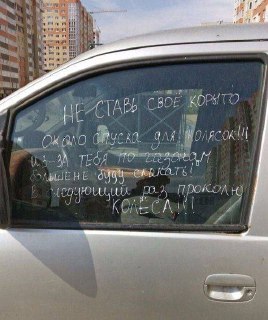 НЕ СТАВЬ СВОЁ КОРЫТО
ОКОЛО СПУСКА ДЛЯ КОЛЯСОК!!!
ИЗ-ЗА ТЕБЯ ПО
БОЛЬШЕ НЕ БУДУ СКАКАТЬ!
В СЛЕДУЮЩИЙ РАЗ ПРОКОЛЮ
КОЛЁСА!!!